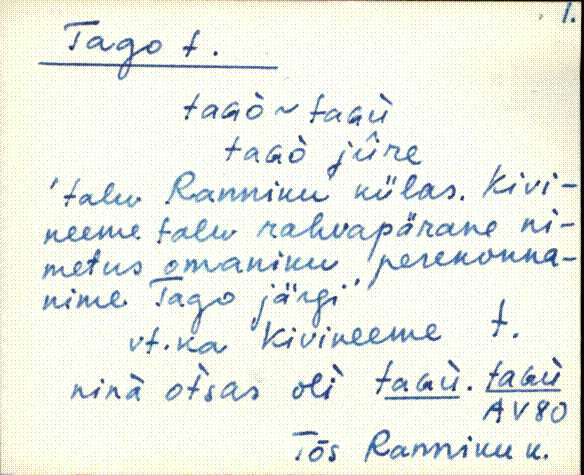 1.
Tago t.
taGò ~ taGù
taGò jûre
'talu Ranniku külas. Kivi-
neeme talu rahvapärane ni-
metus omaniku perekonna-
nime Tago järgi'
vt. ka Kivineeme t.
ninà otsas oli taGù. taGù
AV80
Tõs Ranniku k.